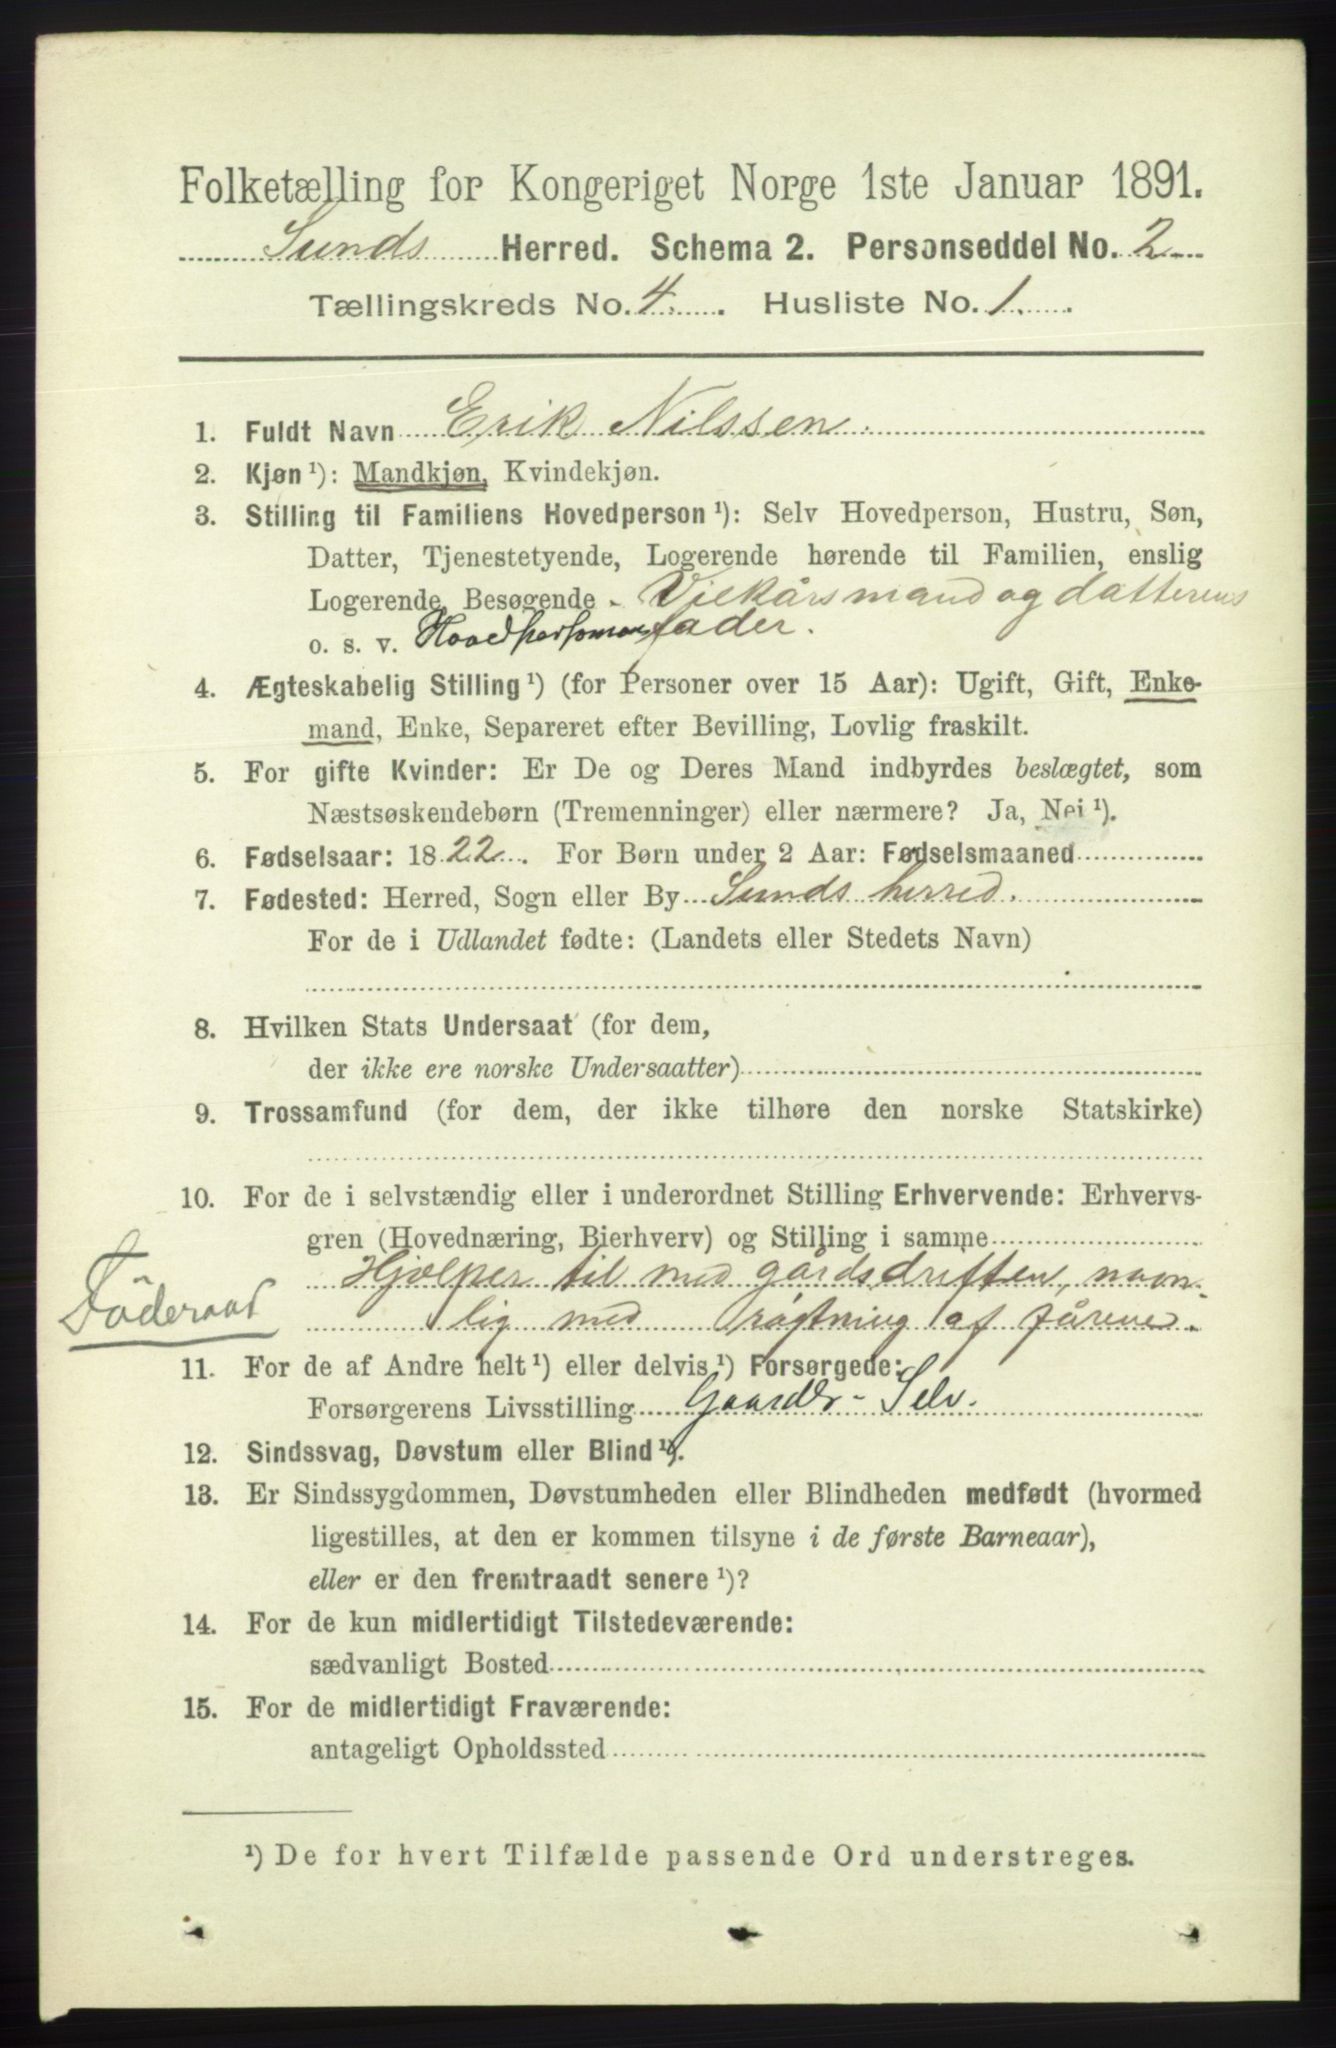 Folketælling for Kongeriget Norge 1ste Januar 1891.
Sunds Herred. Schema 2. Personseddel No. 2
Tællingskreds No. 4. Husliste No. 1.
1. Fuldt Navn Erik Nilssen.
2. Kjøn ¹): Mandkjøn, Kvindekjøn.
3. Stilling til Familiens Hovedperson ¹): Selv Hovedperson, Hustru, Søn,
Datter, Tjenestetyende, Logerende hørende til Familien, enslig
Logerende, Besøgende - Vilkårsmand og datterens
o. s. v. fader.
4. Ægteskabelig Stilling ¹) (for Personer over 15 Aar): Ugift, Gift, Enke-
mand, Enke, Separeret efter Bevilling, Lovlig fraskilt.
5. For gifte Kvinder: Er De og Deres Mand indbyrdes beslægtet, som
Næstsøskendebørn (Tremenninger) eller nærmere? Ja, Nei ¹).
6. Fødselsaar: 1822. For Børn under 2 Aar: Fødselsmaaned
7. Fødested: Herred, Sogn eller By Sunds herred.
For de i Udlandet fødte: (Landets eller Stedets Navn)
8. Hvilken Stats Undersaat (for dem,
der ikke ere norske Undersaatter)
9. Trossamfund (for dem, der ikke tilhøre den norske Statskirke)
10. For de i selvstændig eller i underordnet Stilling Erhvervende: Erhvervs-
gren (Hovednæring, Bierhverv) og Stilling i samme
Hjælper til med gårdsdriften, navn-
Föderaad
lig med røgtning af fårene.
11. For de af Andre helt ¹) eller delvis ¹) Forsørgede:
Forsørgerens Livsstilling Gaardbr - Selv.
12. Sindssvag, Døvstum eller Blind ¹).
13. Er Sindssygdommen, Døvstumheden eller Blindheden medfødt (hvormed
ligestilles, at den er kommen tilsyne i de første Barneaar),
eller er den fremtraadt senere ¹)?
14. For de kun midlertidigt Tilstedeværende:
sædvanligt Bosted
15. For de midlertidigt Fraværende:
antageligt Opholdssted
¹) De for hvert Tilfælde passende Ord understreges.